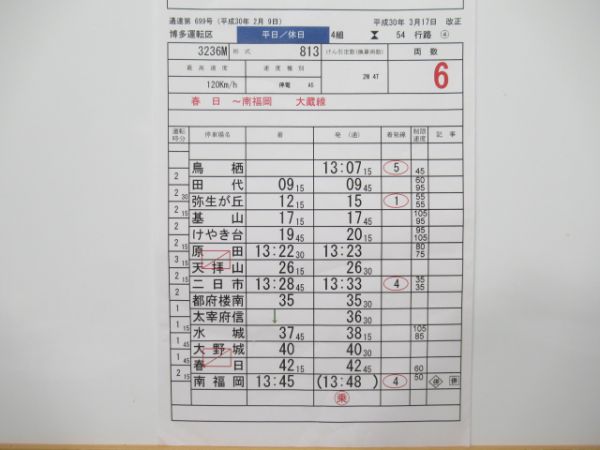 運達第 699号(平成30年 2月 9日) 平成30年 3月17日 改正
博多運転区 平日/休日 4組 54 行路 ④
3236M 形 式 813 けん引定数(換算両数) 両 数
最 高 速 度 速 度 種 別 2M 4T 6
120Km/h 停電 A5
春 日 ~南福岡 大蔵線
運転時分 停車場名 着 発 (通) 着発線 制限速度 記 事
鳥 栖 13:07 15 5 45
2 田 代 09 15 09 45 60 95
2 30 弥生が丘 12 15 15 1 55 55
2 15 基 山 17 15 17 45 105 95
2 けやき台 19 45 20 15 95 105
2 15 原 田 13:22 30 13:23 80 75
3 15 天 拝 山 26 15 26 30
2 15 二 日 市 13:28 45 13:33 4 35 35
2 都府楼南 35 35 30
1 太宰府信 ↓ 36 30
1 15 水 城 37 45 38 15 105 85
1 45 大 野 城 40 40 30
1 45 春 日 42 15 42 45 60
2 15 南 福 岡 13:45 (13:48 ) 4 50 併 併
乗